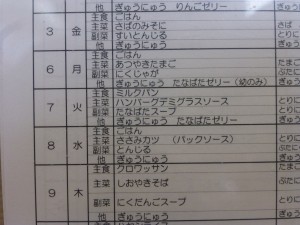 他 ぎゅうにゅう りんごゼリー ぎゅう
3 金 主食 ごはん
主菜 さばのみそに さば
副菜 すいとんじる とりに
他 ぎゅうにゅう
6 月 主食 ごはん
主菜 あつやきたまご たまご
副菜 にくじゃが ぶたに
他 ぎゅうにゅう たなばたゼリー(幼のみ) ぎゅう
7 火 主食 ミルクパン
主菜 ハンバーグデミグラスソース とりに
副菜 たなばたスープ とりに
他 ぎゅうにゅう たなばたゼリー
8 水 主食 ごはん
主菜 ささみカツ (パックソース) とりに
副菜 とんじる ぶたに
他 ぎゅうにゅう ぎゅう
9 木 主食 クロワッサン たまご
主菜 しおやきそば ぶたに
副菜 にくだんごスープ とりに
他 ぎゅうにゅう